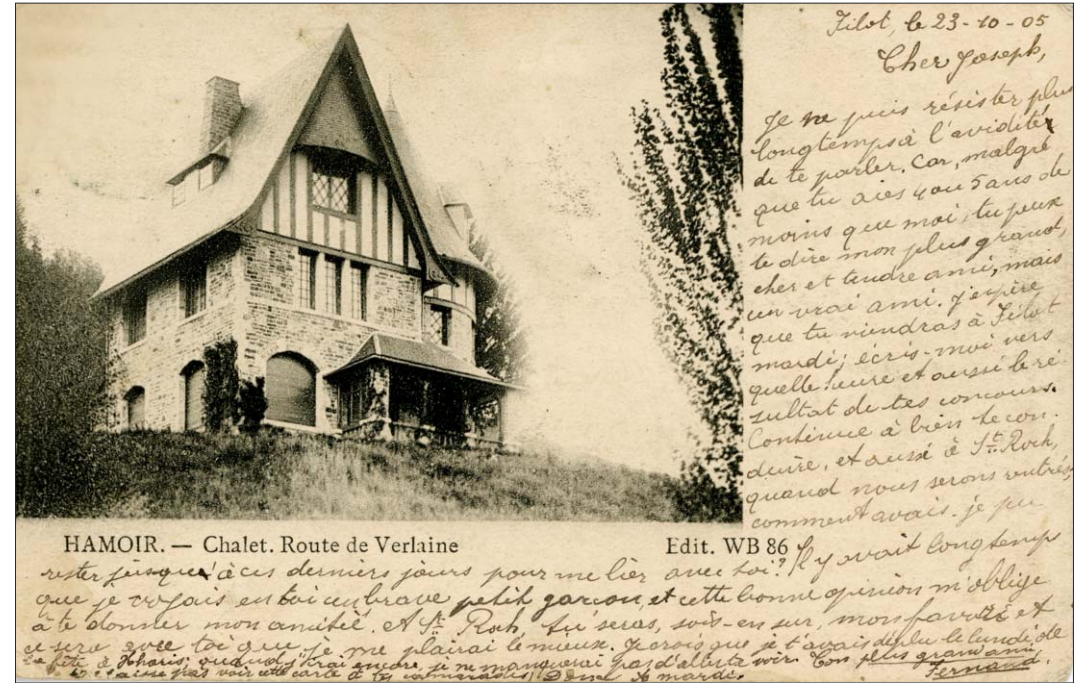 Filot, le 23-10-05
Cher Joseph,
Je ne puis résister plus
longtemps à l'avidité
de te parler. Car, malgré
que tu aies 4 ou 5 ans de
moins que moi, tu peux
te dire mon plus grand,
cher et tendre ami, mais
un vrai ami. J'espère
que tu viendras à Filot
mardi; écris-moi vers
quelle heure et aussi le ré
sultat de tes concours.
Continue à bien te con-
duire, et aussi à St. Roch,
quand nous serons rentrés,
comment avais-je pu
HAMOIR. — Chalet. Route de Verlaine
Edit. WB 86
rester jusqu'à ces derniers jours pour me lier avec toi? Il y avait longtemps
que je croyais en toi un brave petit garçon, et cette bonne opinion m'oblige
à te donner mon amitié. A St. Roch tu seras, sois-en sur, mon favori et
ce sera avec toi que je me plairai le mieux. Je crois que je t'avais déplu le lundi de
la fête à Xhoris, quand j'irai encore, je ne manquerai pas d'aller te voir. Ton plus grand ami
pas voir cette carte à tes camarades. Donc à mardi. Fernand.